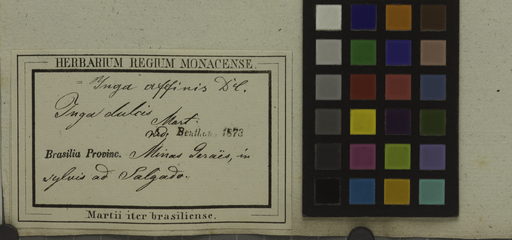 HERBARIUM REGIUM MONACENSE.
= Inga affinis DC.
Inga dulcis
Mart.
1873
Brasilia Provinc. Minas Geraës, in
sylvis ad Salgado.
Martii iter brasiliense.